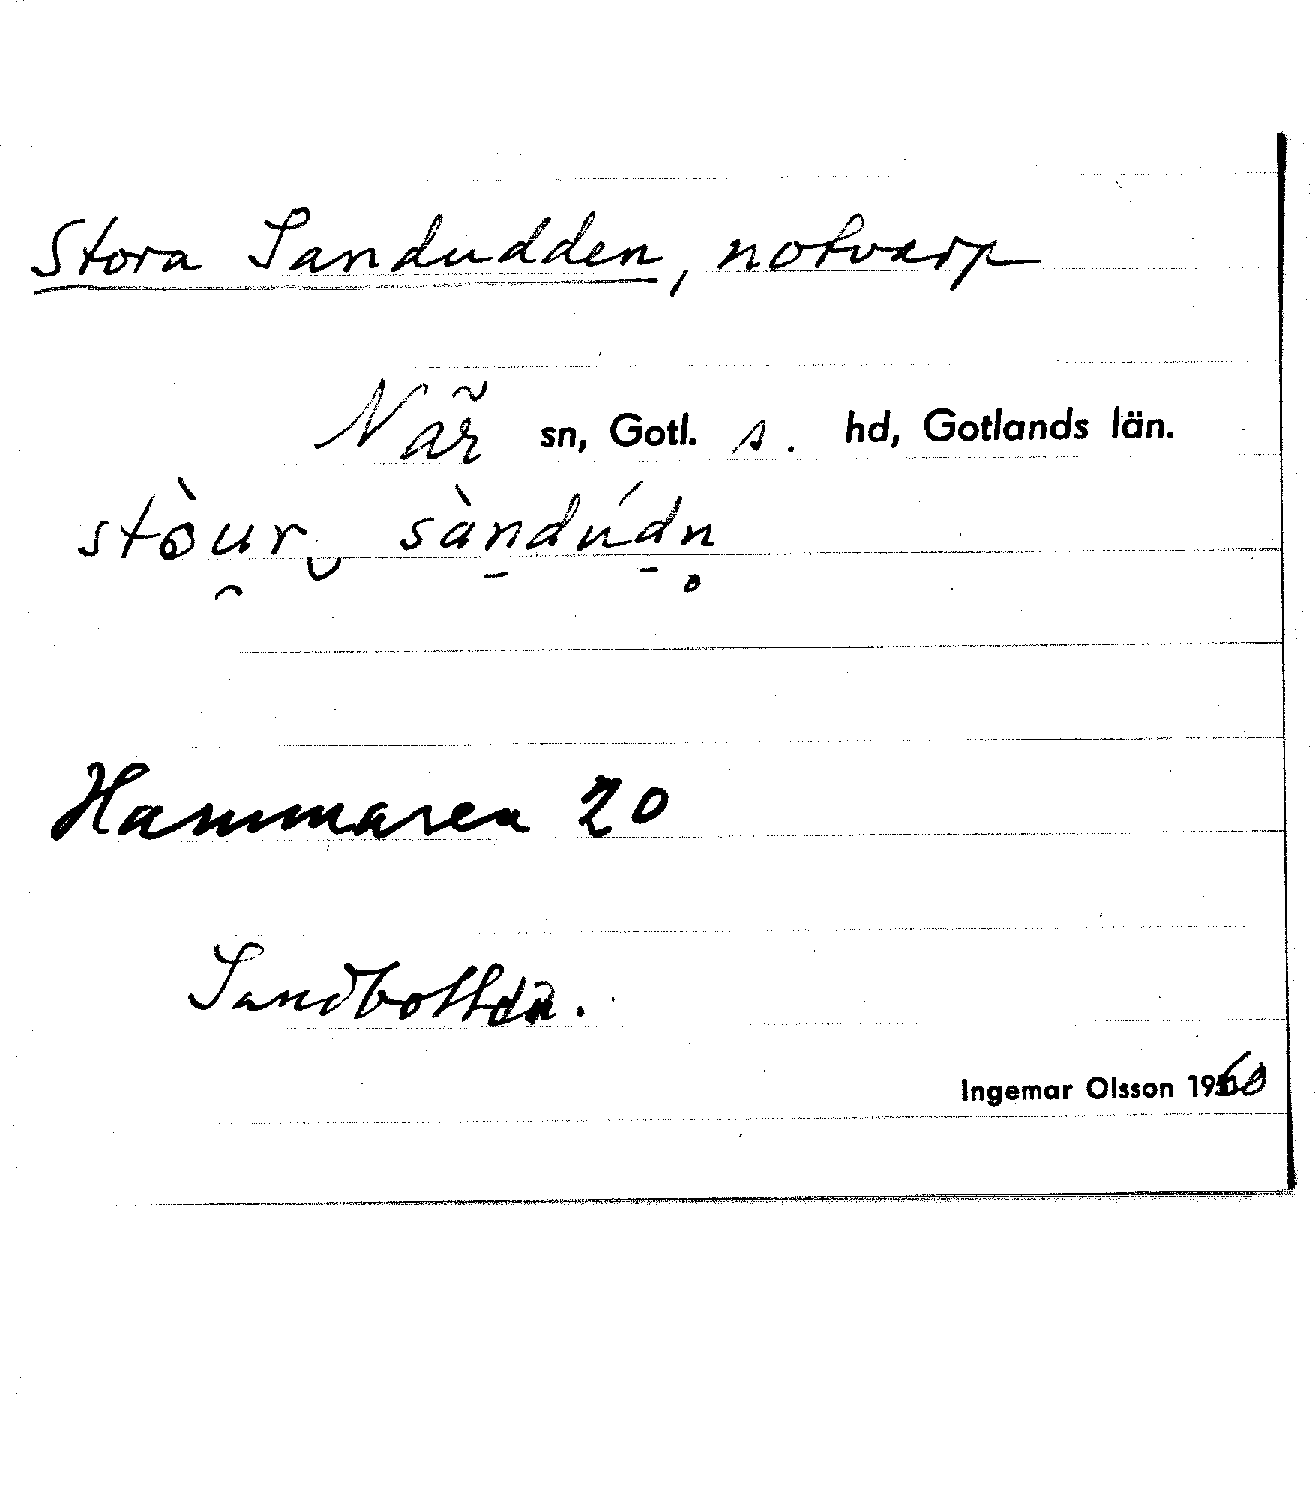 Stora Sandudden, notvarp
När sn, Gotl. s. hd, Gotlands län.
stòur sàndúdn
Hammaren 20
Sandbotten.
Ingemar Olsson 1960